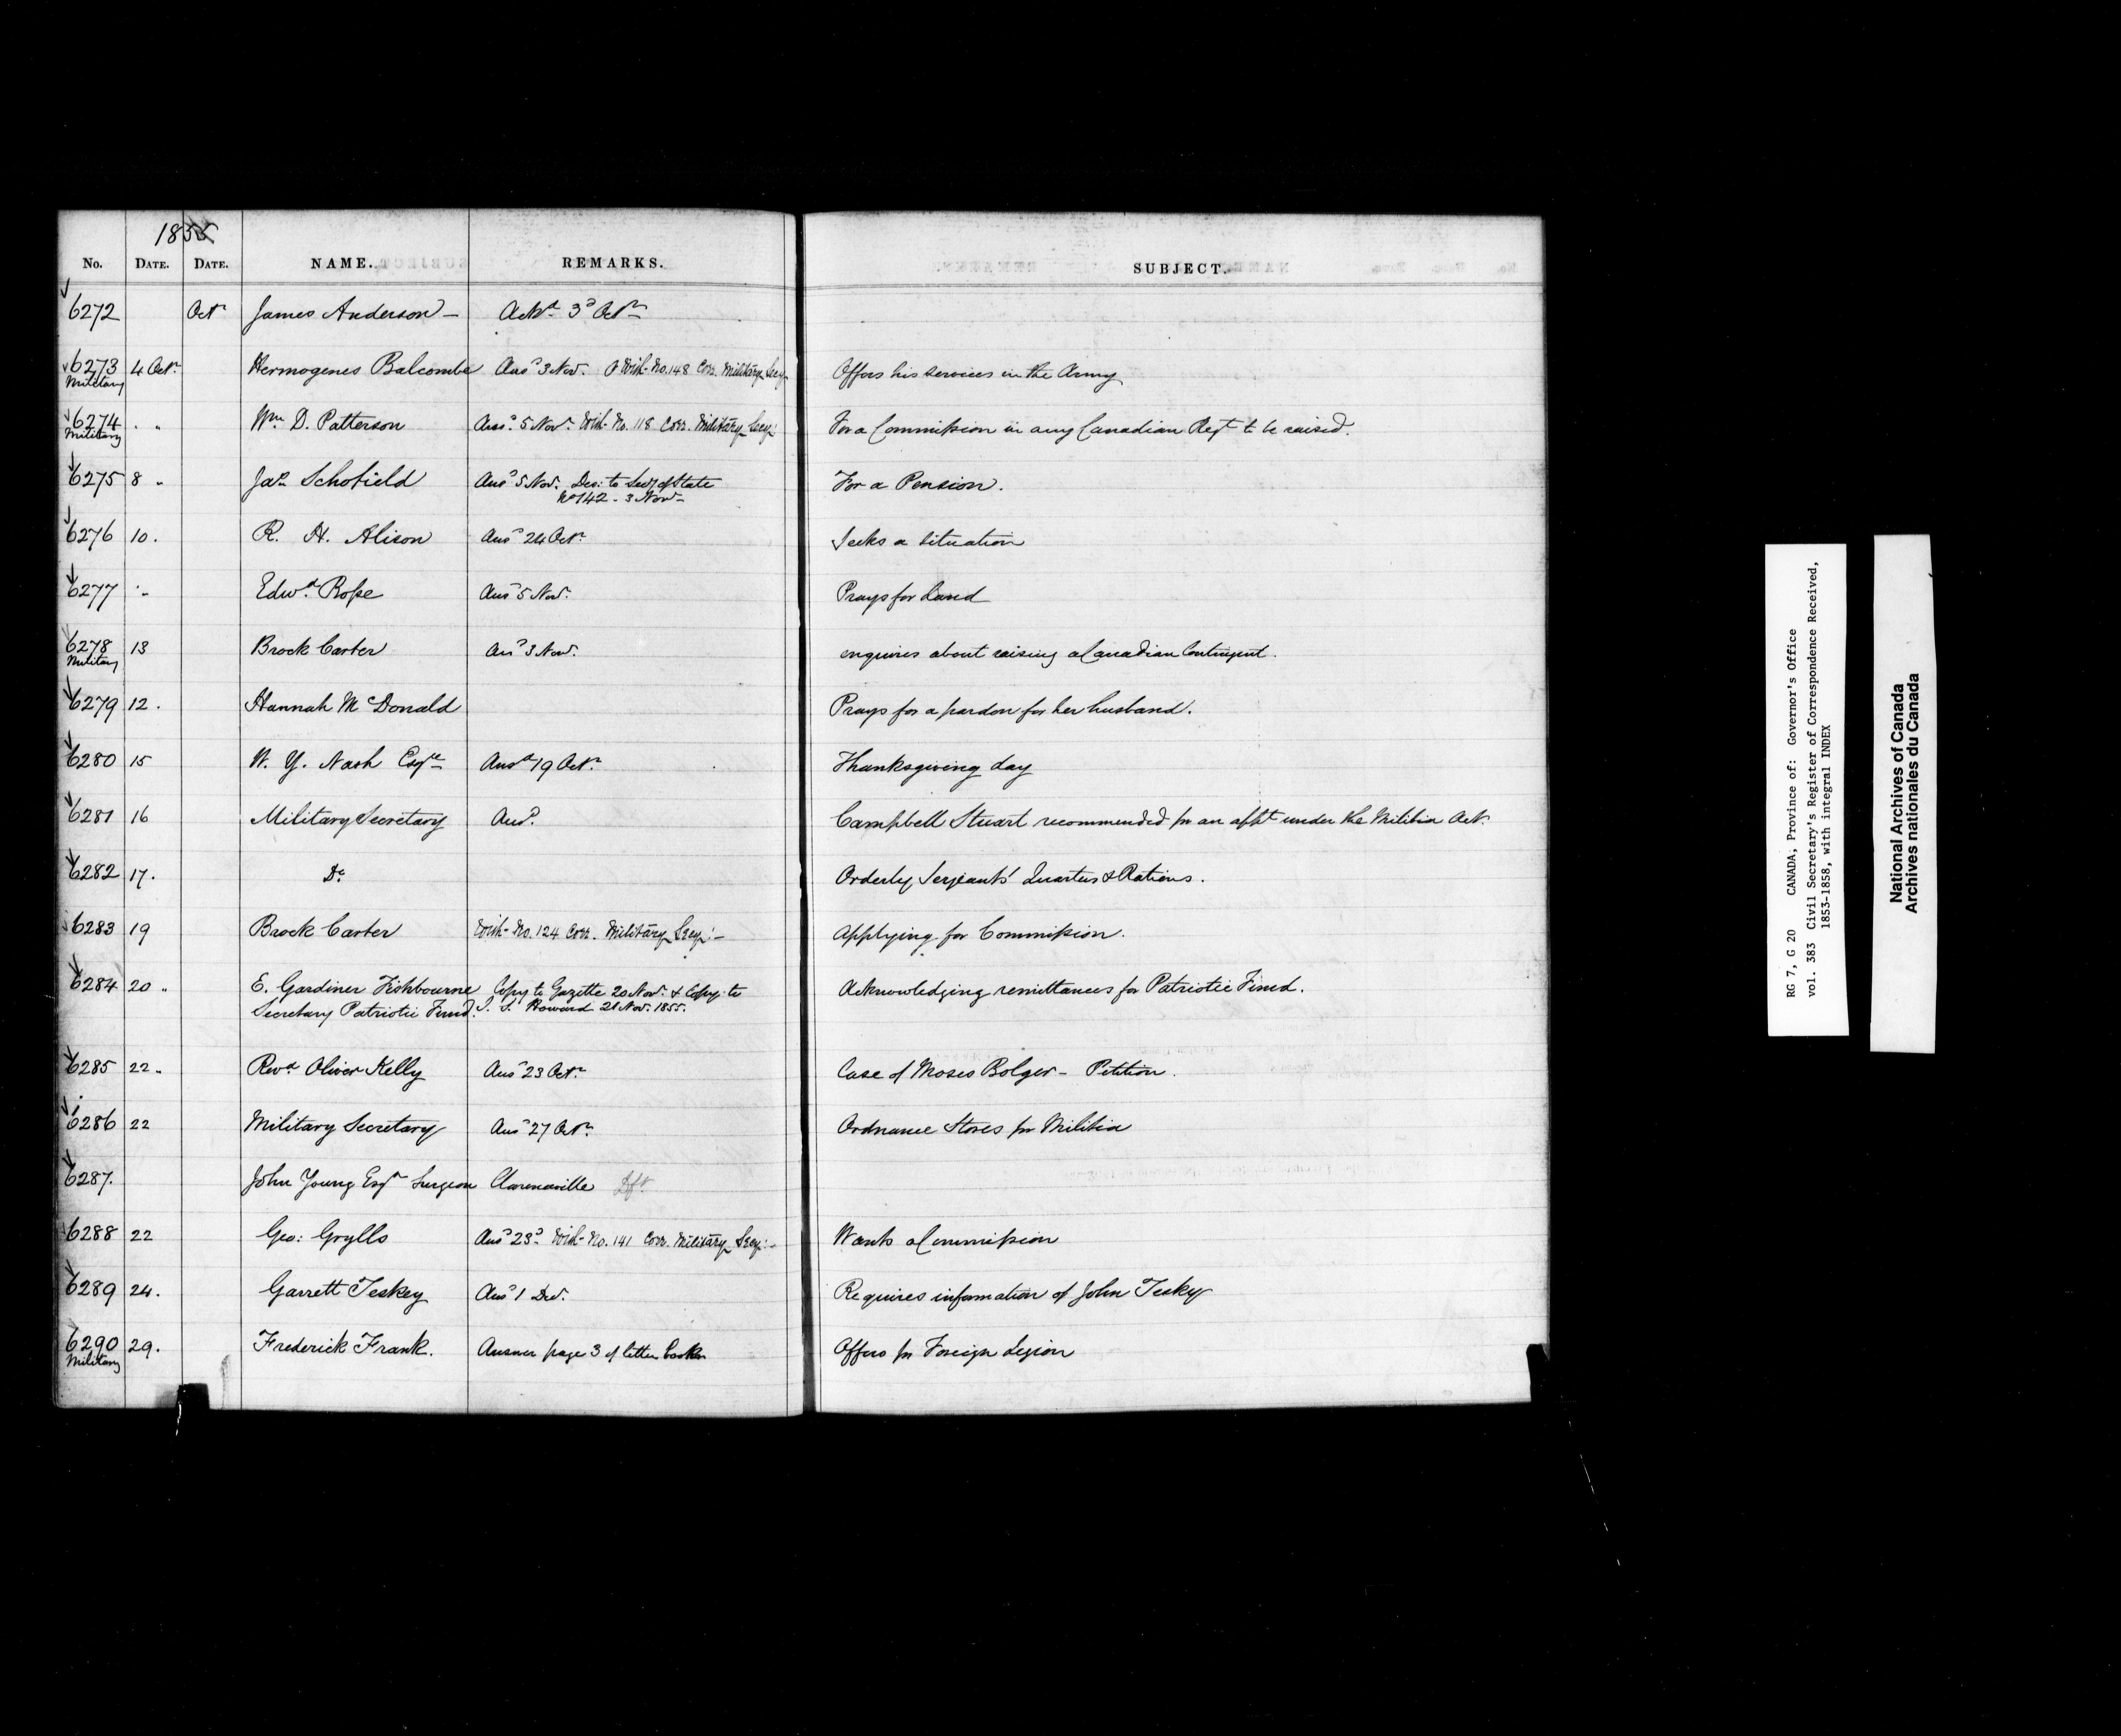 1855
No. DATE. DATE. NAME. REMARKS. SUBJECT.
6272 Octr James Anderson — Ackd 3d Octr
6273 4 Octr Hermogenes Balcombe Ansd 3 Nov. With No. 148 Corr. Military Secy Offers his services in the Army
Military
6274 " " Wm D. Patterson Ansd 5 Novr With No. 118 Corr. Military Secy: For a Commission in any Canadian Regt to be raised.
Military
6275 8 " Jas Schofield Ansd 5 Nov. Des: to Secy of State For a Pension.
No 142 - 3 Nov
6276 10. R. H. Alison Ansd 24 Octr Seeks a situation
6277 " Edwd Rose Ansd 5 Nov. Prays for Land
6278 13 Brock Carter Ansd 3 Nov. enquires about raising a Canadian Contingent.
Military
6279 12. Hannah McDonald Prays for a pardon for her husband.
6280 15 W. Y. Nash Esqre Ansd 19 Octr Thanksgiving day
6281 16 Military Secretary Ansd. Campbell Stuart recommended for an appt under the Militia Act.
6282 17. Do Orderly Serjeants' Quarters & Rations.
6283 19 Brock Carter With No. 124 Corr. Military Secy:— Applying for Commission.
6284 20 " E. Gardiner Fishbourne Copy to Gazette 20 Nov. & Copy to Acknowledging remittances for Patriotic Fund.
Secretary Patriotic Fund. Howard 21 Nov. 1855.
6285 22 " Revd Oliver Kelly Ansd 23 Octr Case of Moses Bolger — Petition.
6286 22 Military Secretary Ansd 27 Octr Ordnance Stores for Militia
6287. John Young Esqr Surgeon Clarenceville
6288 22 Geo: Grylls Ansd 23d With No. 141 Corr. Military Secy:— Wants a Commission
6289 24. Garrett Teskey Ansd 1 Dec. Requires information of John Tesky
6290 29. Frederick Frank. Answer page 3 of letter book Offers for Foreign Legion
Military
RG 7, G 20 CANADA, Province of: Governor's Office
vol. 383 Civil Secretary's Register of Correspondence Received,
1853-1858, with integral INDEX
National Archives of Canada
Archives nationales du Canada